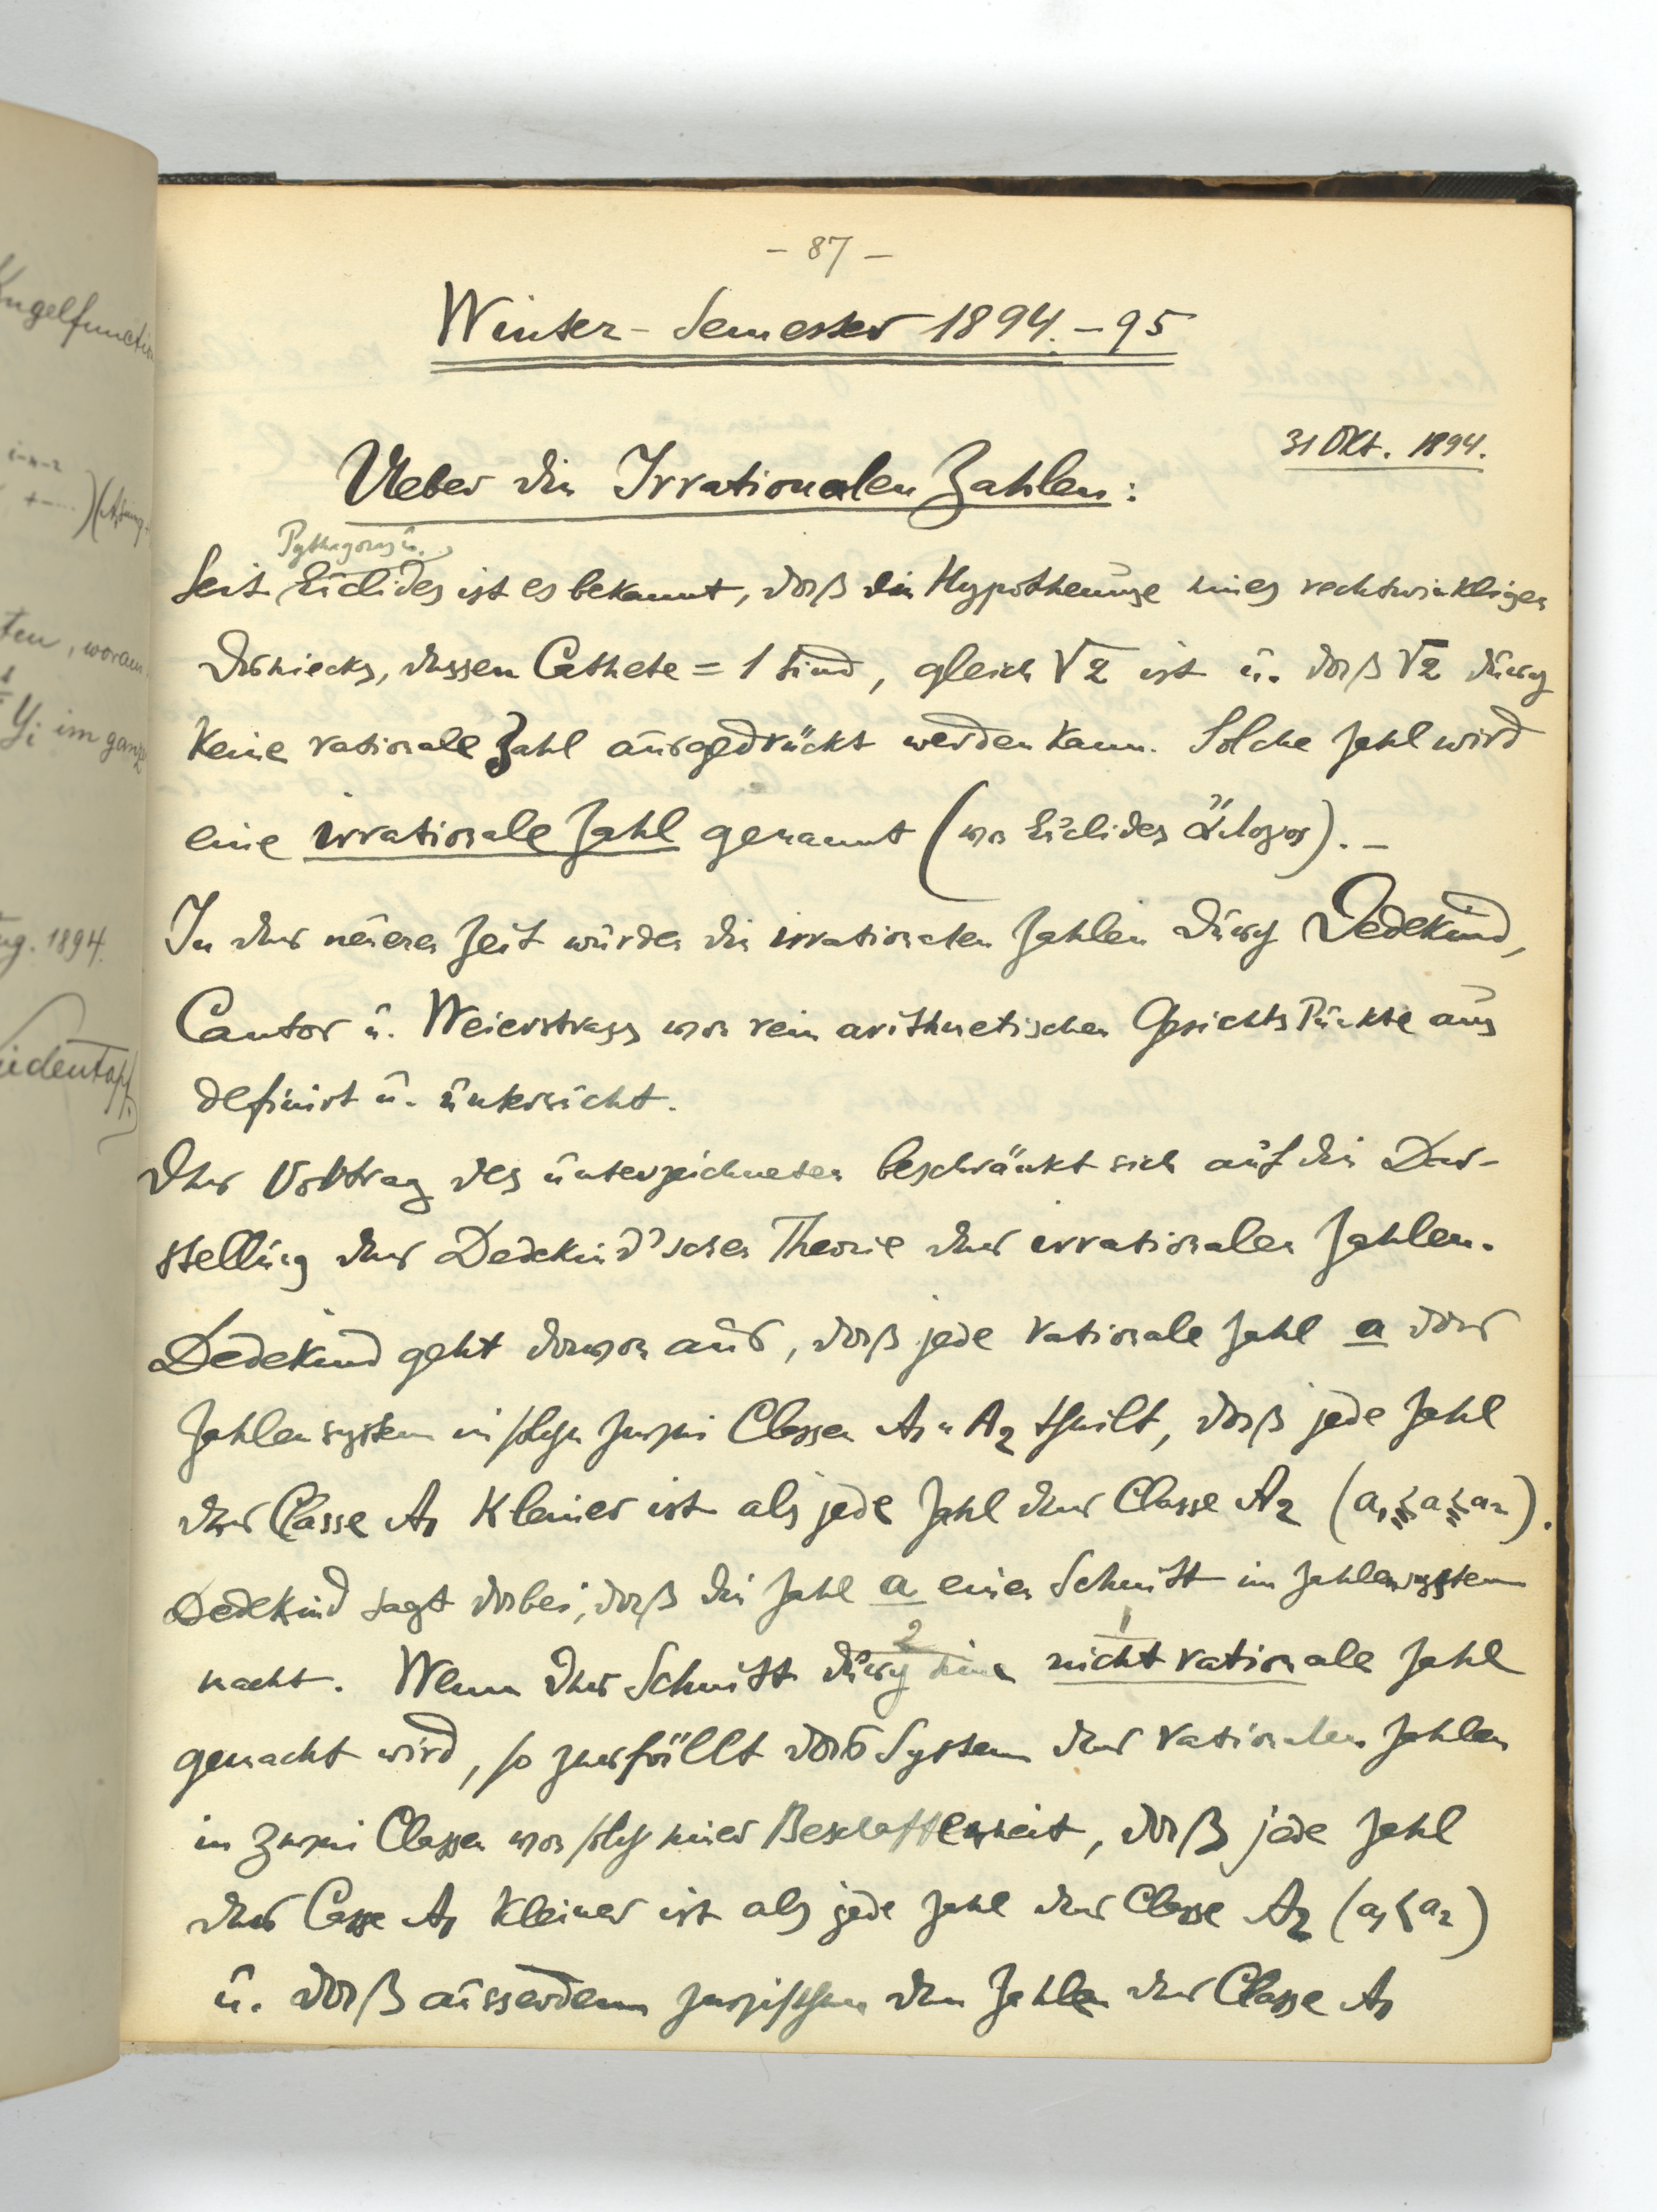 ugelfunctio
ten, woraus
Yi im ganz
ug. 1894.
- 87 -
Winter-Semester 1894.-95
31 Okt. 1894.
Ueber die Irrationalen Zahlen:
Pythagoras u.
Seit Euclides ist es bekannt, daß die Hypothenuse eines rechtwinkligen
Dreiecks, dessen Cathete = 1 sind, gleich √2 ist u. daß √2 durch
keine rationale Zahl ausgedrückt werden kann. Solche Zahl wird
eine irrationale Zahl genannt (von Euclides ἄλογος). –
In der neueren Zeit wurden die irrationalen Zahlen durch Dedekind,
Cantor u. Weierstrass von rein arithmetischen Gesichtspunkte aus
definirt u. untersucht.
Der Vortrag des unterzeichneten beschränkt sich auf die Dar-
stellung der Dedekind'schen Theorie der irrationalen Zahlen.
Dedekind geht davon aus, daß jede rationale Zahl a das
Zahlensystem in solche zwei Classen A1 u A2 theilt, daß jede Zahl
der Classe A1 kleiner ist als jede Zahl der Classe A2 (a1 ≤ a ≤ a2).
Dedekind sagt dabei, daß die Zahl a einen Schnitt im Zahlensystem
2 1
macht. Wenn der Schnitt durch eine nicht rationale Zahl
gemacht wird, so zerfällt das System der rationalen Zahlen
in zwei Classen von solch einer Beschaffenheit, daß jede Zahl
der Casse A1 kleiner ist als jede Zahl der Classe A2 (a1 < a2)
u. daß ausserdem zwischen den Zahlen der Classe A1